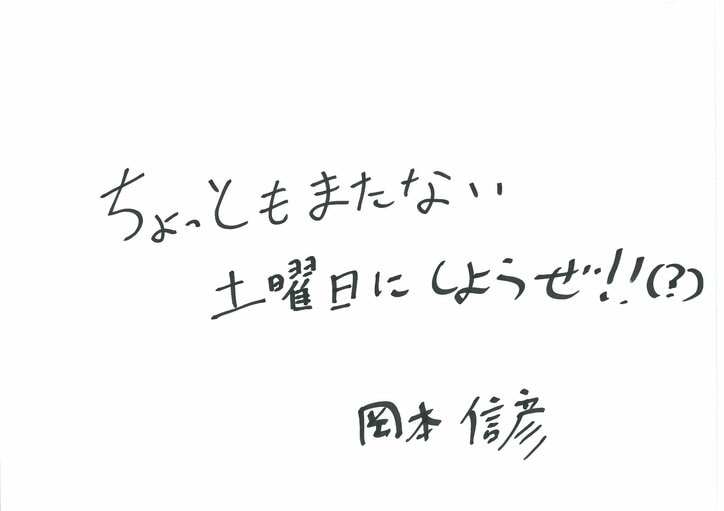 ちょっともまたない
土曜日にしようぜ!!(?)
岡本 信彦